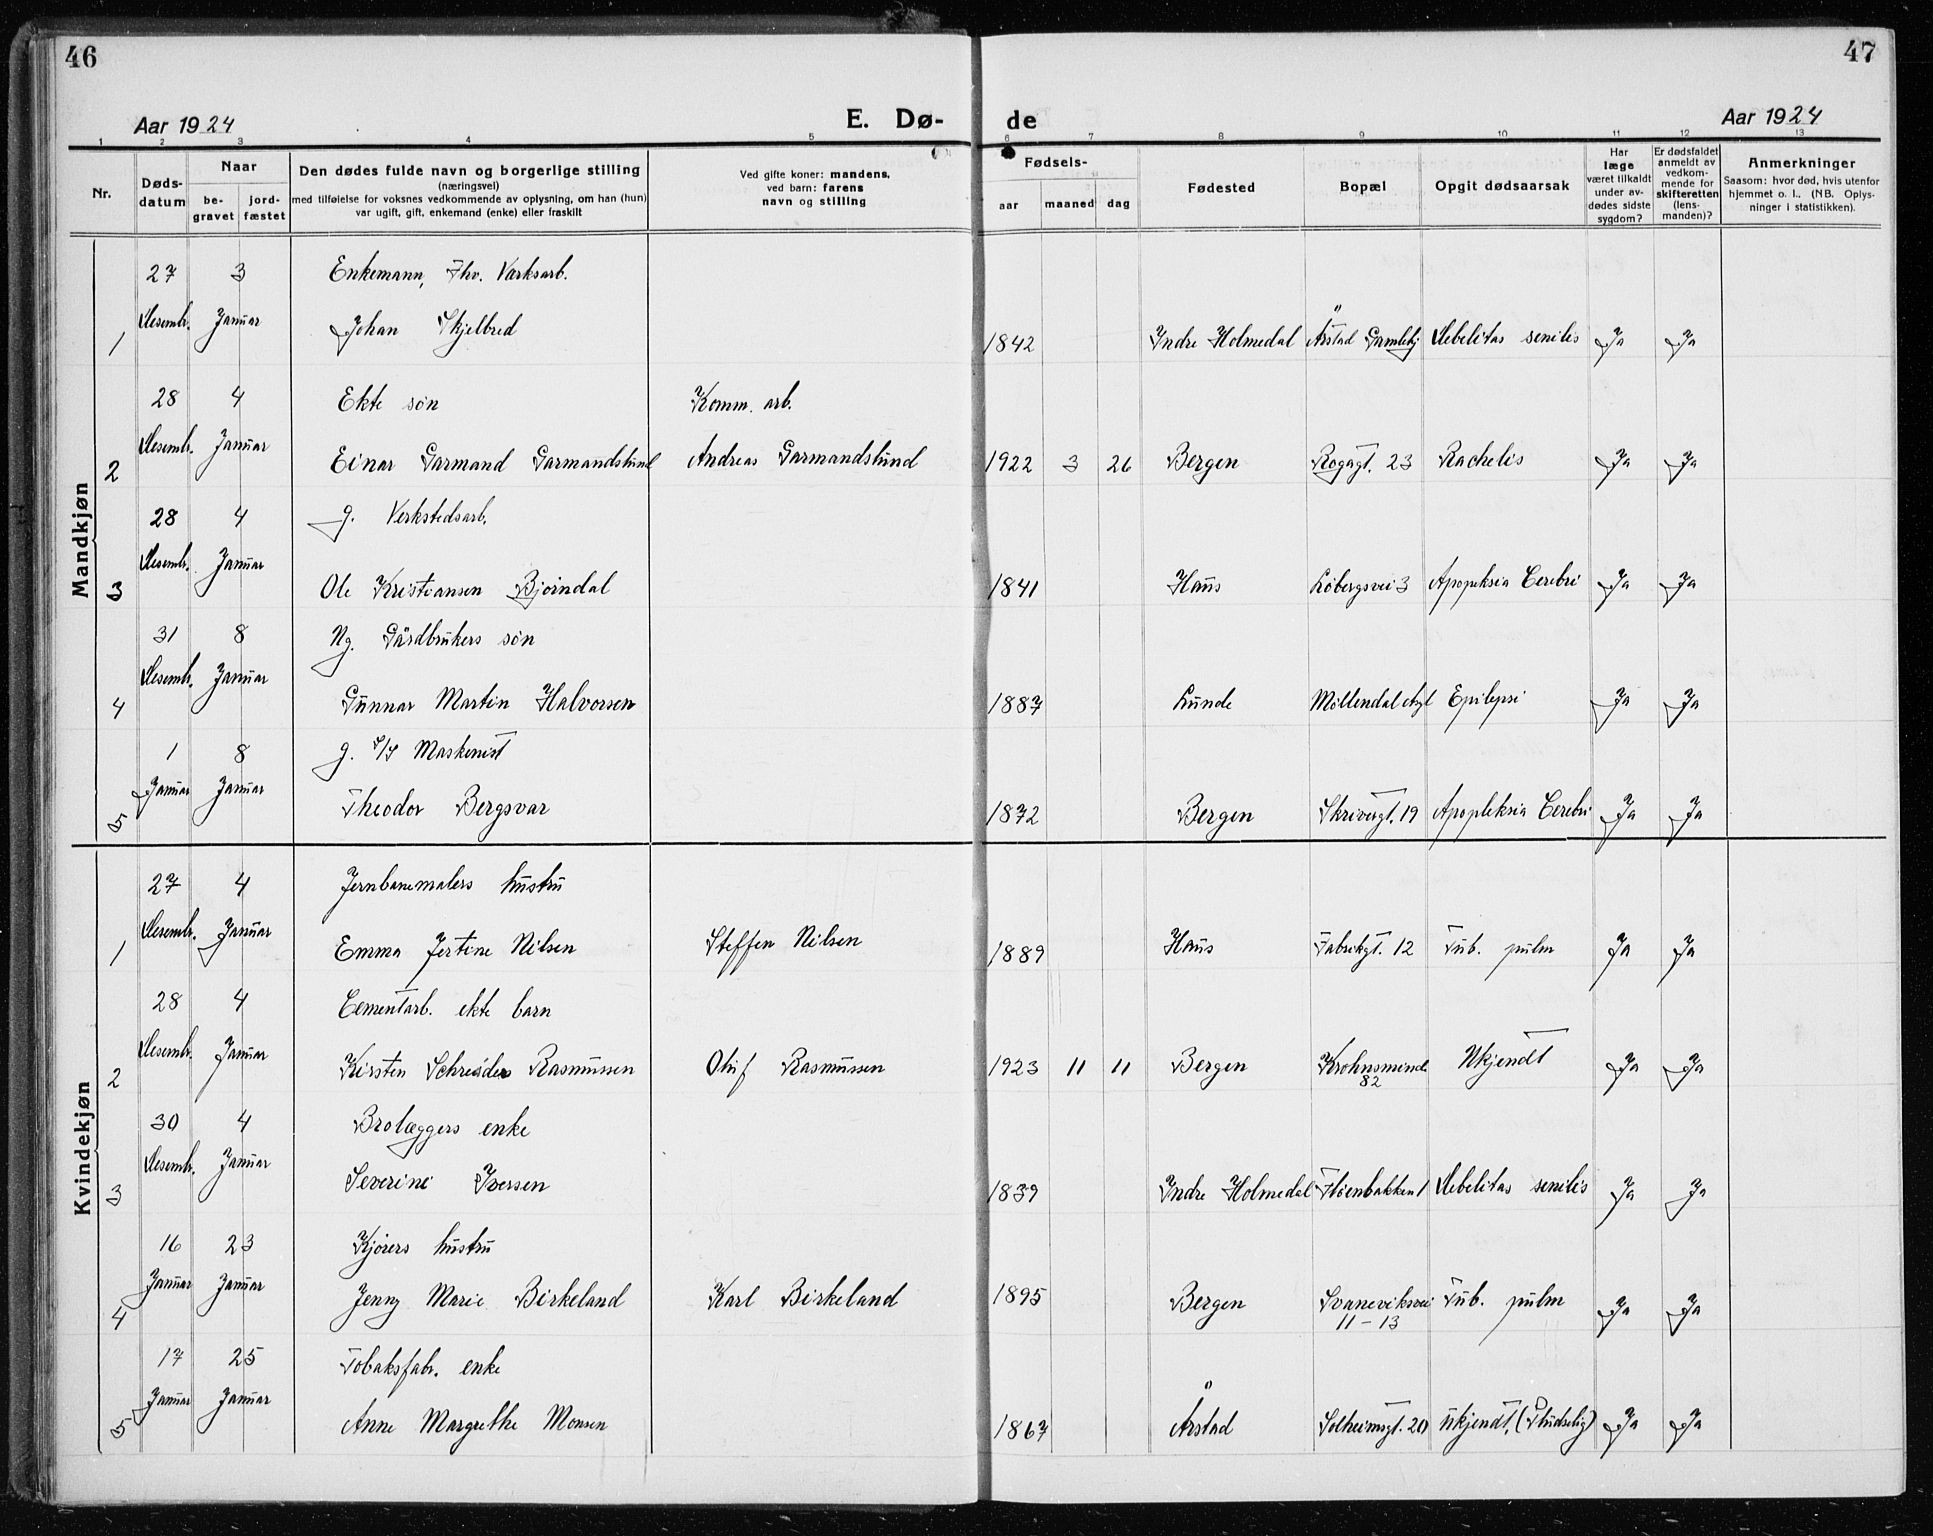 46
47
Aar 1924
E. Dø-
de
Aar 1924
1 2 3 4 5 6 7 8 9 10 11 12 13
Nr.
Døds-
datum
Naar
be-
gravet
jord-
fæstet
Den dødes fulde navn og borgerlige stilling
(næringsvei)
med tilføielse for voksnes vedkommende av oplysning, om han (hun)
var ugift, gift, enkemand (enke) eller fraskilt
Ved gifte koner: mandens,
ved barn: farens
navn og stilling
Fødsels-
aar maaned dag
Fødested
Bopæl
Opgit dødsaarsak
Har
læge
været tilkaldt
under av-
dødes sidste
sygdom?
Er dødsfaldet
anmeldt av
vedkom-
mende for
skifteretten
(lens-
manden)?
Anmerkninger
Saasom: hvor død, hvis utenfor
hjemmet o. l., (NB. Oplys-
ninger i statistikken).
Mandkjøn
27 3 Enkemann, Fhv. Værksarb.
1 Desembr. Januar Johan Skjelbred 1842 Indre Holmedal Årstad Gamlehj Debelitas senilis Ja Ja
28 4 Ekte søn Komm. arb.
2 Desembr. Januar Einar Garmand Garmandslund Andreas Garmandslund 1922 3 26 Bergen Rogagt. 23 Rachelis Ja Ja
28 4 g. Verkstedsarb.
3 Desembr. Januar Ole Kristiansen Bjørndal 1841 Haus Løbergsvei 3 Apopeksia Cerebri Ja Ja
31 8 Ug. Gårdbrukers søn
4 Desembr. Januar Gunnar Martin Halvorsen 1887 Lunde Møllendal Asyl Epilepsi Ja Ja
1 8 g. S/S Maskenist
5 Januar Januar Theodor Bergsvar 1872 Bergen Skrivergt. 19 Apopleksia Cerebri Ja Ja
Kvindekjøn
27 4 Jernbanemalers hustru
1 Desembr. Januar Emma Jertine Nilsen Steffen Nilsen 1889 Haus Fabrikgt. 12 Tub. pulm Ja Ja
28 4 Cementarb. ekte barn
2 Desembr. Januar Kirsten Schrøder Rasmussen Oluf Rasmussen 1923 11 11 Bergen Krohnsminde Ukjendt Ja Ja
82
30 4 Brolæggers enke
3 Desembr. Januar Severine Iversen 1839 Indre Holmedal Fløenbakken 1 Debelitas senilis Ja Ja
16 23 Kjørers hustru
4 Januar Januar Jenny Marie Birkeland Karl Birkeland 1895 Bergen Svaneviksvei Tub. pulm Ja Ja
11-13
17 25 Tobaksfabr. enke
5 Januar Januar Anne Margrethe Monsen 1867 Årstad Solheimsgt. 20 Ukjendt, (Pludselig) Ja Ja